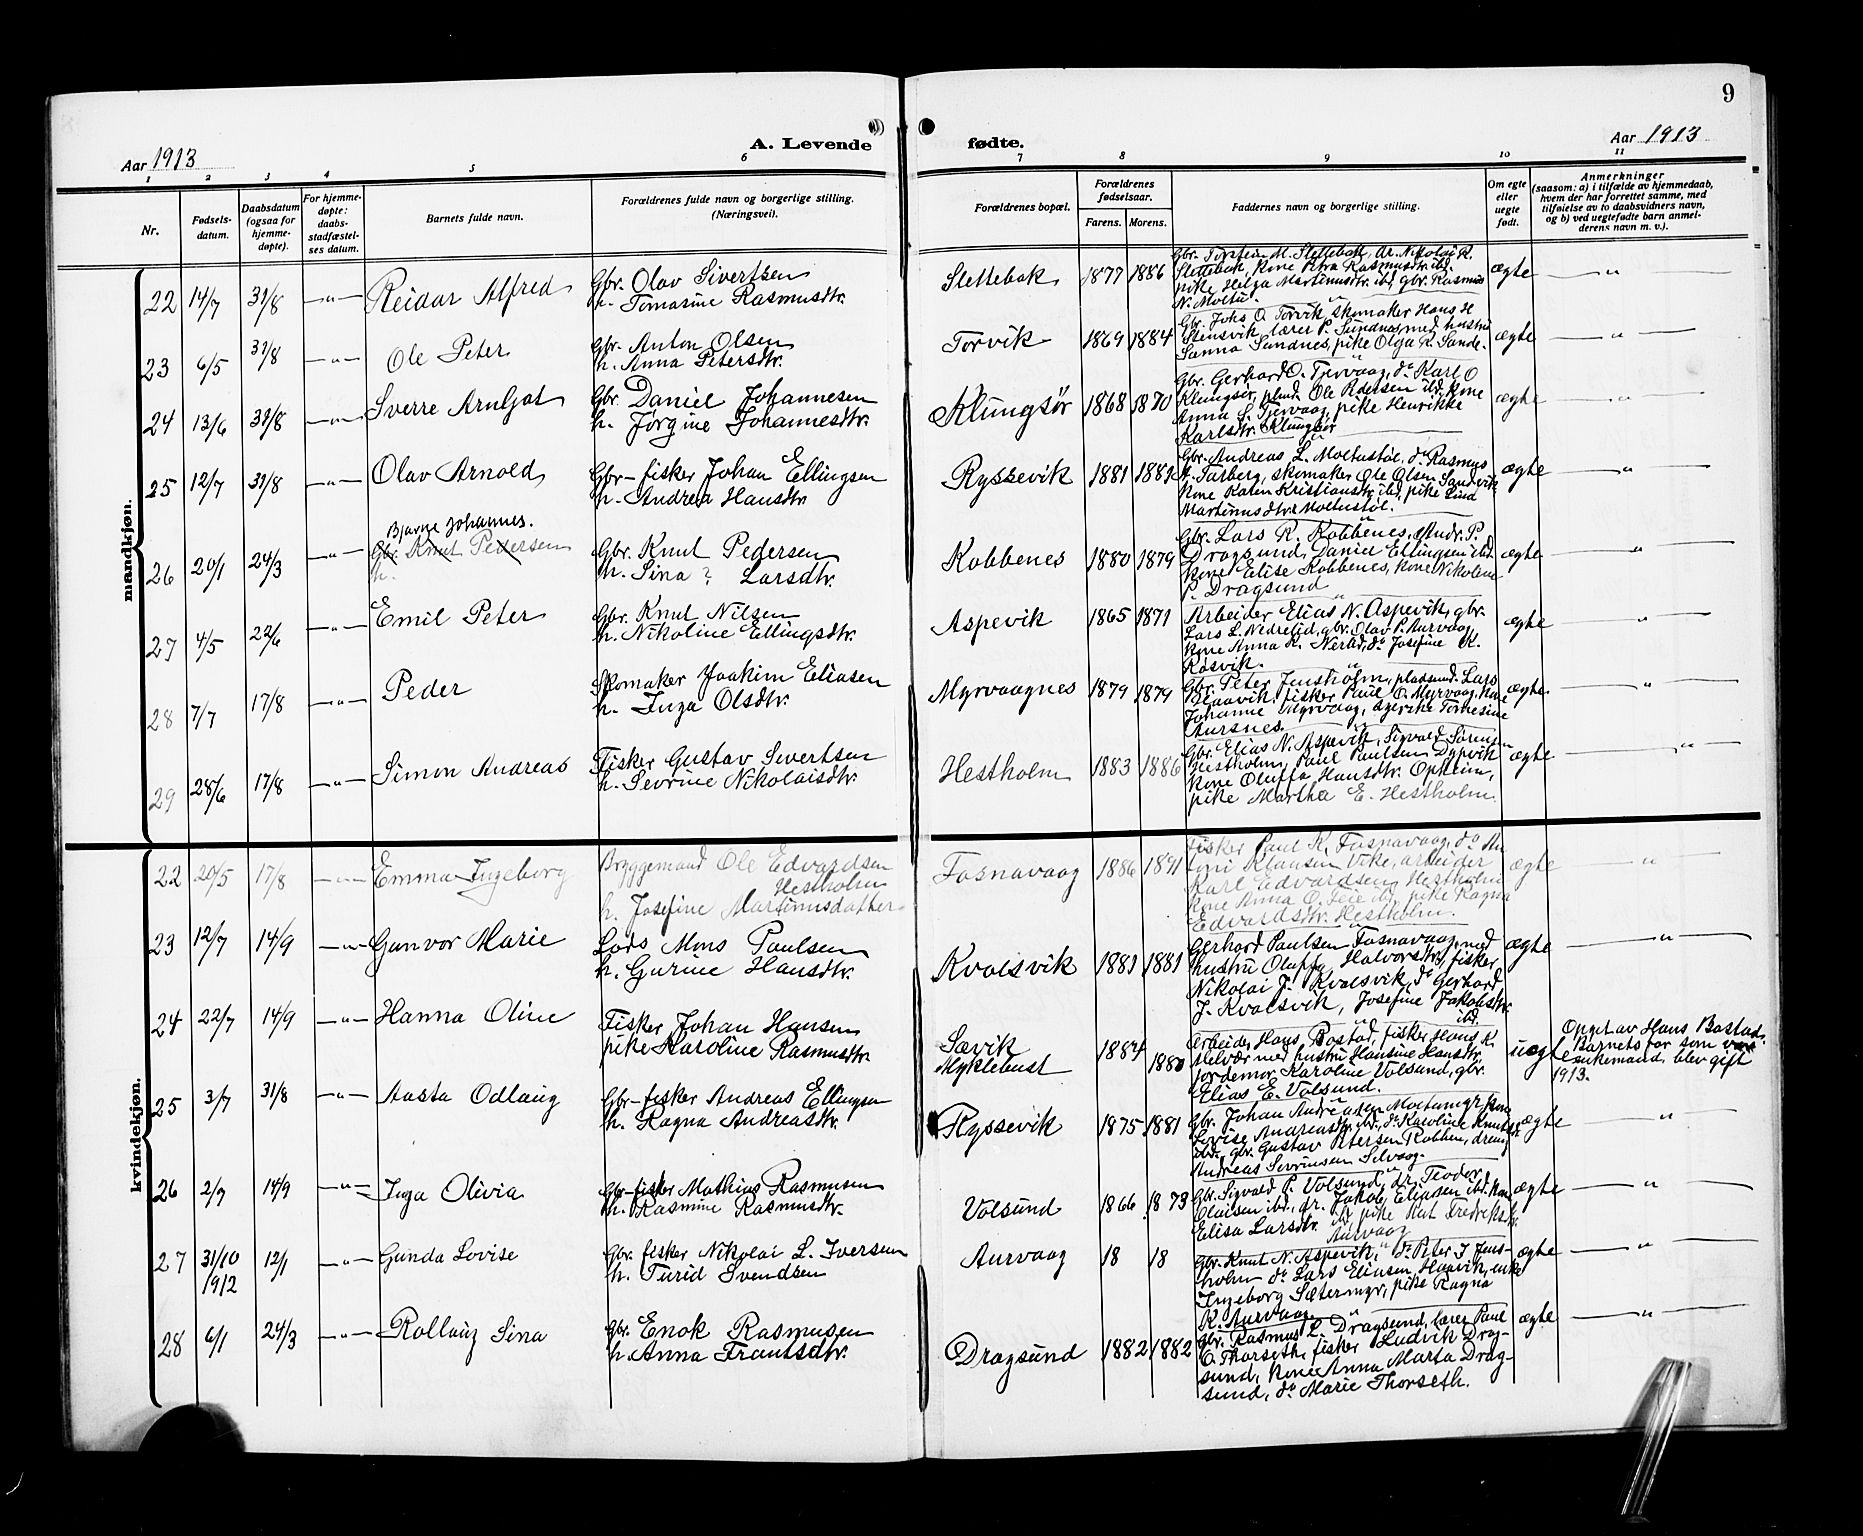 9
A. Levende fødte.
Aar 1913
Aar 1913
1 2 3 4 5 6 7 8 9 10 11
Nr.
Fødsels-
datum.
Daabsdatum
(ogsaa for
hjemme-
døpte).
For hjemme-
døpte:
daabs-
stadfæstel-
ses datum.
Barnets fulde navn.
Forældrenes fulde navn og borgerlige stilling.
(Næringsvei).
Forældrenes bopæl.
Forældrenes
fødselsaar.
Farens. Morens.
Faddernes navn og borgerlige stilling.
Om egte
eller
uegte
født.
Anmerkninger
(saasom: a) i tilfælde av hjemmedaab,
hvem der har forrettet samme, med
tilføielse av to daabsvidners navn,
og b) ved uegtefødte barn anmel-
derens navn m. v.).
mandkjøn.
22 14/7 31/8 —"— Reidar Alfred
Gbr. Olav Sivertsen
h. Tomasine Rasmusdtr.
Slettebak 1877 1886
Gbr. Torstein M. Slettebak, dr. Nikolai R.
Slettebak, kone Petra Rasmusdtr. ibd.
pike Helga Martinusdtr. ibd, gbr. Rasmus
N. Moltu.
ægte —"—
23 6/5 31/8 —"— Ole Peter
Gbr. Anton Olsen
h. Anna Petersdtr.
Torvik 1869 1884
Gbr. Johs O. Torvik, skomaker Hans H
Stensvik, lærer P. Sundnes med hustru
Sanna Sundnes, pike Olga R. Sande.
ægte —"—
24 13/6 31/8 —"— Sverre Arnljot
Gbr. Daniel Johannesen
h. Jørgine Johannesdtr.
Klungsör 1868 1870
Gbr. Gerhard O. Tjervaag, do Karl O
Klungsör, plmd. Ole Pedersen ibd. kone
Anna S. Tjervaag, pike Henrikke
Karlsdtr. Klungsör
ægte —"—
25 12/7 31/8 —"— Olav Arnold
Gbr-fisker Johan Ellingsen
h. Andrea Hansdtr.
Ryssevik 1881 1882
Gbr. Andreas L. Moltustöl, do Rasmus
Tarberg, skomaker Ole Olsen Sandvik
kone Karen Kristiansdtr. ibd, pike Lina
Martinusdtr. Moltustöl.
ægte —"—
Bjarne Johannes.
26 20/1 24/3 —"— Gbr. Knut Pedersen
h.
Gbr. Knut Pedersen
h. Sina ? Larsdtr.
Kobbenes 1880 1879
Gbr. Lars R. Kobbenes, Andr. P.
Dragsund, Daniel Ellingsen ibd.
kone Elise Kobbenes, kone Nikoline
P. Dragsund
ægte —"—
27 4/5 22/6 —"— Emil Peter
Gbr. Knut Nilsen
h. Nikoline Ellingsdtr.
Aspevik 1865 1871
Arbeider Elias N. Aspevik, gbr.
Lars L. Nedrelid, gbr. Olav P. Aurvaag,
kone Anna K. Nerlid, do Josefine K.
Rosvik.
ægte —"—
28 7/7 17/8 —"— Peder
Skomaker Joakim Eliasen
h. Inga Olsdtr.
Myrvaagnes 1879 1879
Gbr. Peter Jensholm, pladsmd. Lars
Haavik, fisker Paul O. Myrvaag, kone
Johanne Myrvaag, syerske Tomesine
Aursnes.
ægte —"—
29 28/6 17/8 —"— Simon Andreas
Fisker Gustav Sivertsen
h. Sevrine Nikolaisdtr.
Hestholm 1883 1886
Gbr. Elias N. Aspevik, Sigvald Sörensen
Hestholm, Paul Paulsen Dypvik
kone Oluffa Hansdtr. Opheim,
pike Martha E. Hestholm.
ægte —"—
kvindekjøn.
22 20/5 17/8 —"— Emma Ingeborg
Bryggemand Ole Edvardsen
Hestholm
h. Josefine Martinusdatter
Fosnavaag 1886 1891
Fisker Paul K. Fosnavaag, do An
toni Klausen Vike, arbeider
Karl Edvardsen Hestholm
kone Anna O. Leie ibd, pike Ragna
Edvardsdtr. Hestholm.
ægte —"—
23 12/7 14/9 —"— Gunvor Marie
Lods Mons Paulsen
h. Gurine Hansdtr.
Kvalsvik 1881 1881
Gerhard Paulsen Fosnavaag, med
hustru Oluffa Halvorsdtr, fisker
Nikolai J. Kvalsvik, do Gerhard
J. Kvalsvik, Josefine Jakobsdtr.
ibd.
ægte —"—
24 22/7 14/9 —"— Hanna Oline
Fisker Johan Hansen
pike Karoline Rasmusdtr.
Sævik
Myklebust
1884 1880
Arbeider Hans Bostad, fisker Hans K.
Helvær med hustru Hansine Hansdtr,
jordemor Karoline Volsund, gbr.
Elias E. Volsund.
uægte
Opget av Hans Bostad.
Barnets far som var
enkemand, blev gift
1913.
25 3/7 31/8 —"— Aasta Odlaug
Gbr-fisker Andreas Ellingsen
h. Ragna Andreasdtr.
Ryssevik 1875 1881
Gbr. Johan Andreasen Moltumyr, kone
Lovise Andreasdtr. ibd, do Karoline Knutsdtr.
ibd, gbr. Gustav Petersen Robben, dreng
Andreas Sevrinsen Selvaag.
ægte —"—
26 2/7 14/9 —"— Inga Olivia
Gbr-fisker Mathias Rasmusen
h. Rasmine Rasmusdtr.
Volsund 1866 1873
Gbr. Sigvald P. Volsund, dr. Teodor
Olaisen ibd, dr. Jakob Eliasen ibd. kone
Elisa Larsdtr. ibd, pike Kat. Fredriksdtr.
Aurvaag
ægte —"—
27 31/10
1912 12/1 —"— Gunda Lovise
Gbr. fisker Nikolai L. Iversen
h. Turid Svendsen
Aurvaag 18 18
Gbr. Knut N. Aspevik, do Peter J Jens-
holm do Lars Eliasen Haavik, enke
Ingeborg Sætermyr, pike Ragna
K. Aurvaag.
ægte —"—
28 6/1 24/3 —"— Rollaug Sina
Gbr. Enok Rasmusen
h. Anna Frantsdtr.
Dragsund 1882 1882
Gbr. Rasmus L. Dragsund, lærer Paul
O. Thorseth, fisker Ludvik Drag-
sund, kone Anna Marta Drag-
sund, do Marie Thorseth.
ægte —"—